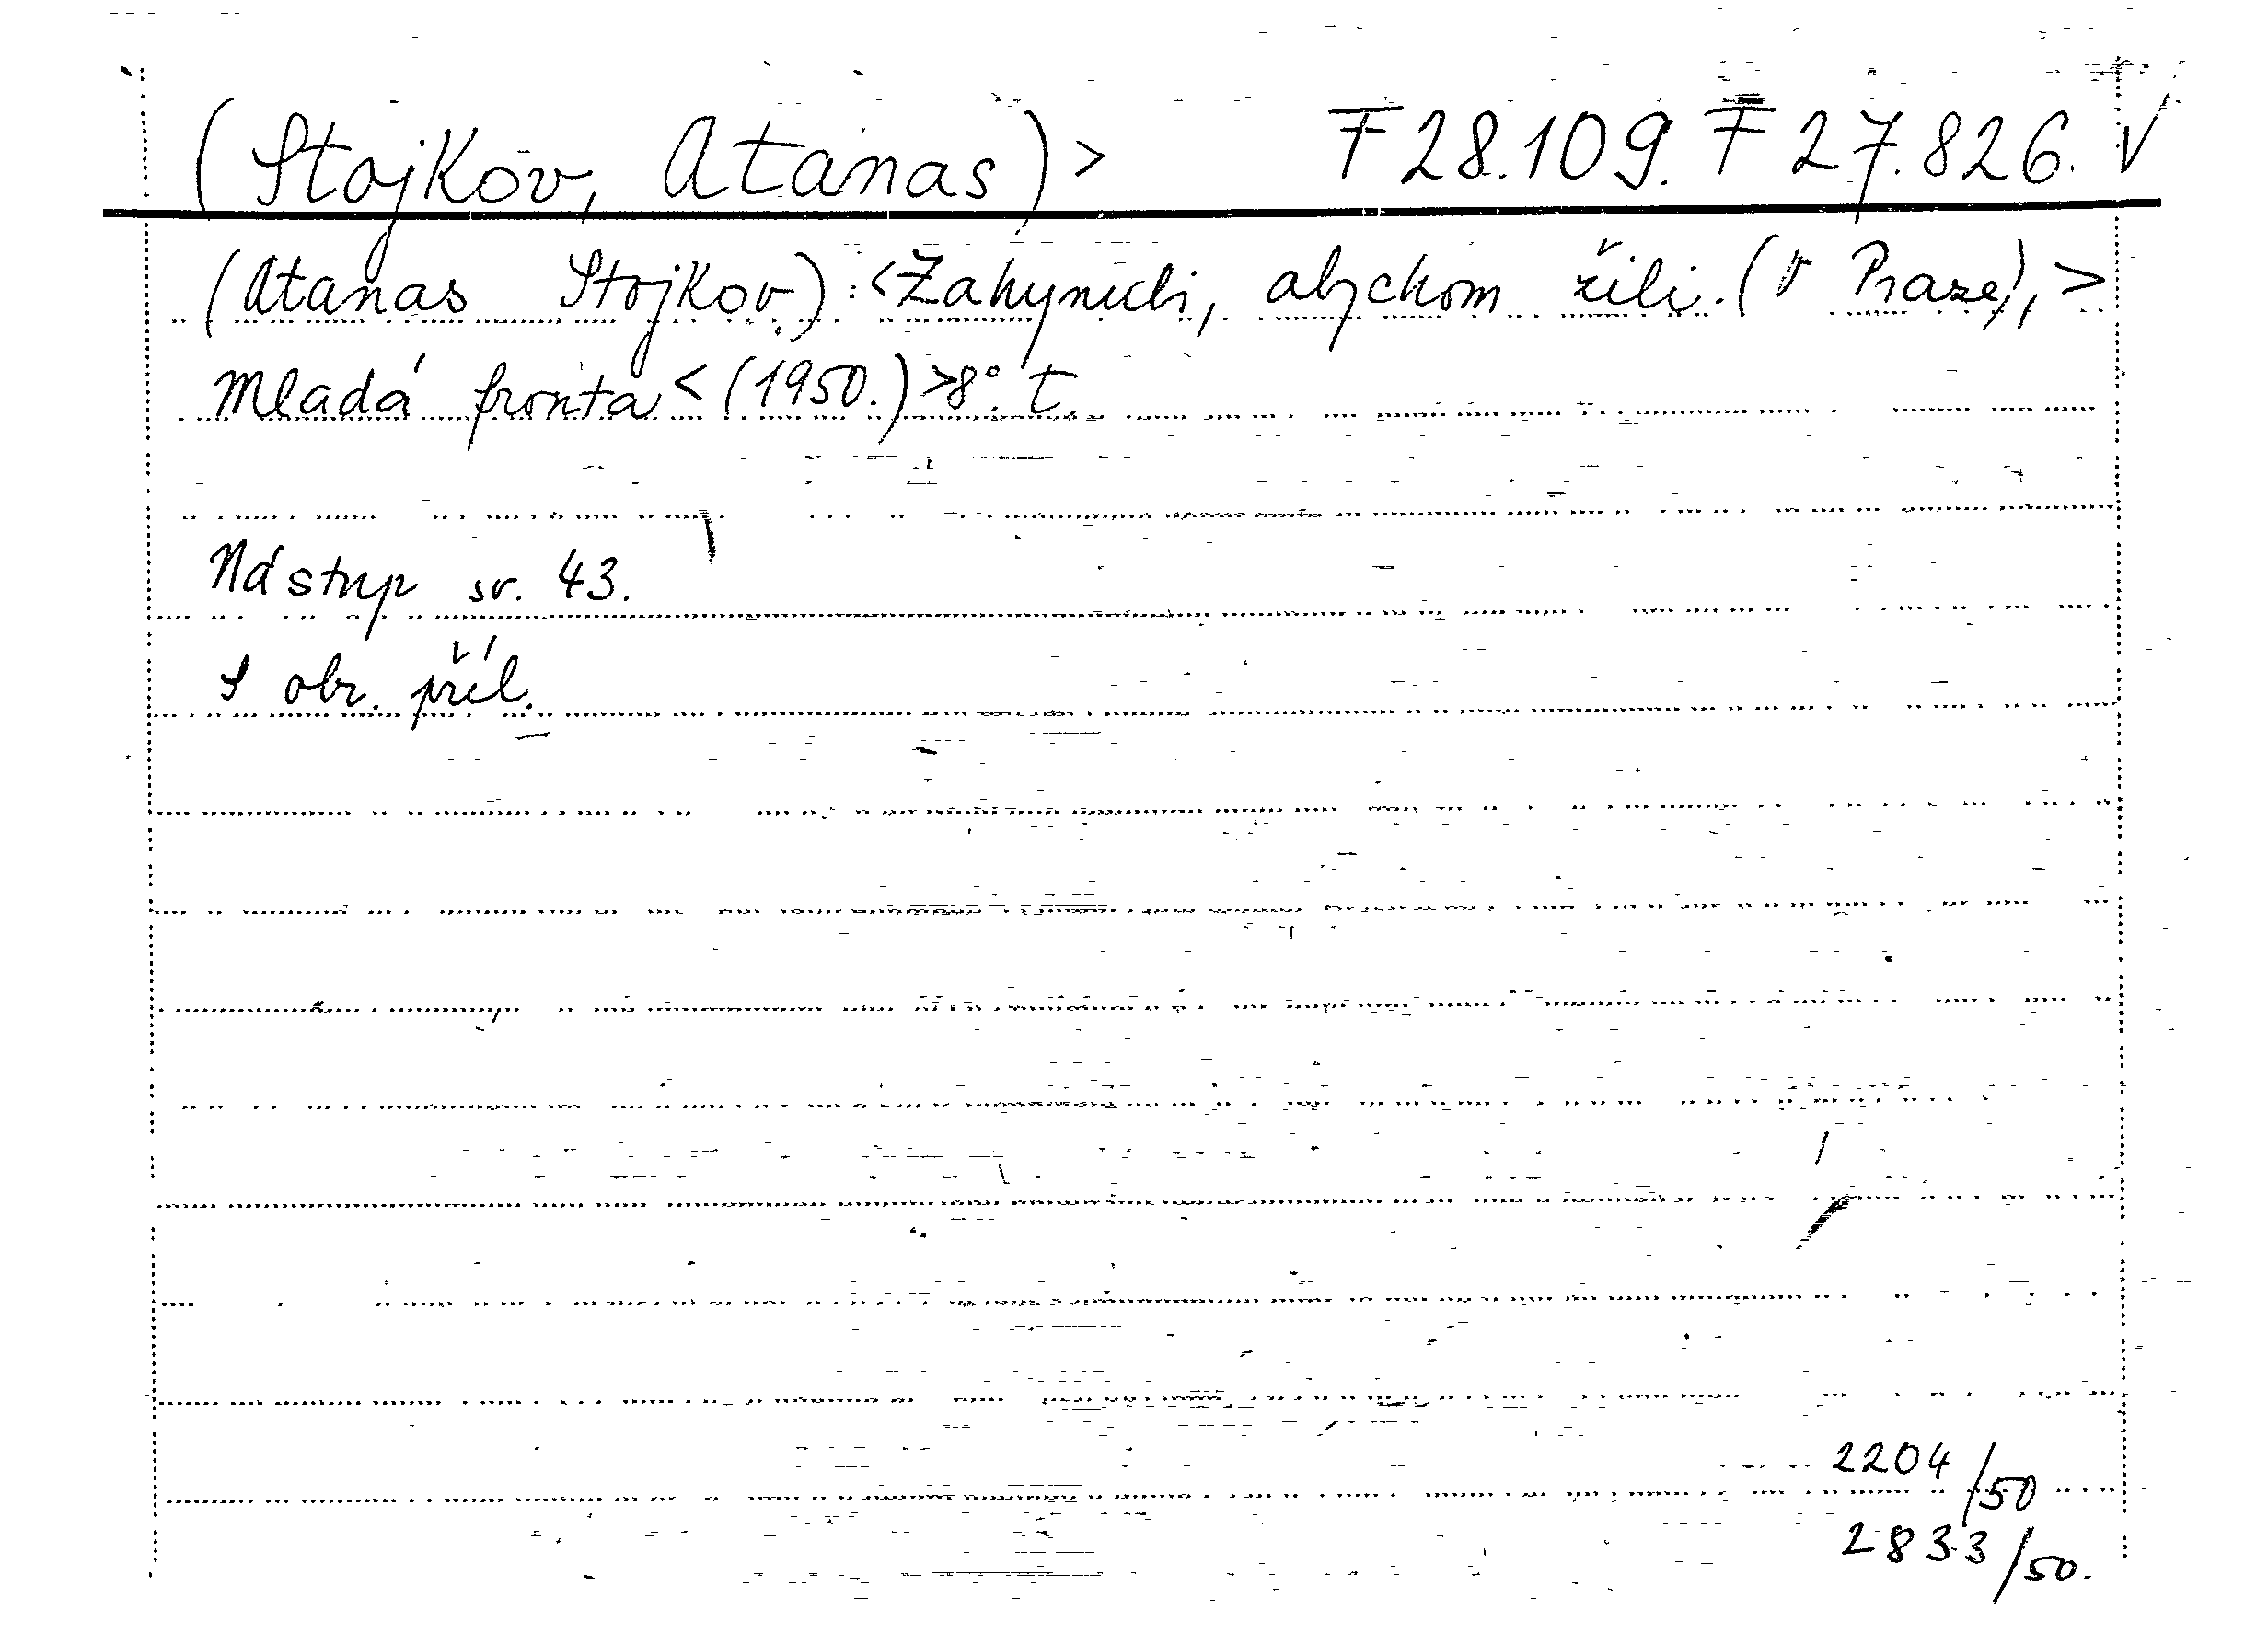 (Stojkov, Atanas)> F 28.109. F 27.826. V
(Atanas Stojkov): <Zahynuli, abychom žili. (V Praze), >
Mladá fronta < (1950.) >8° t.
Nástup sv. 43.
S obr. příl.
2204/50
2833/50.